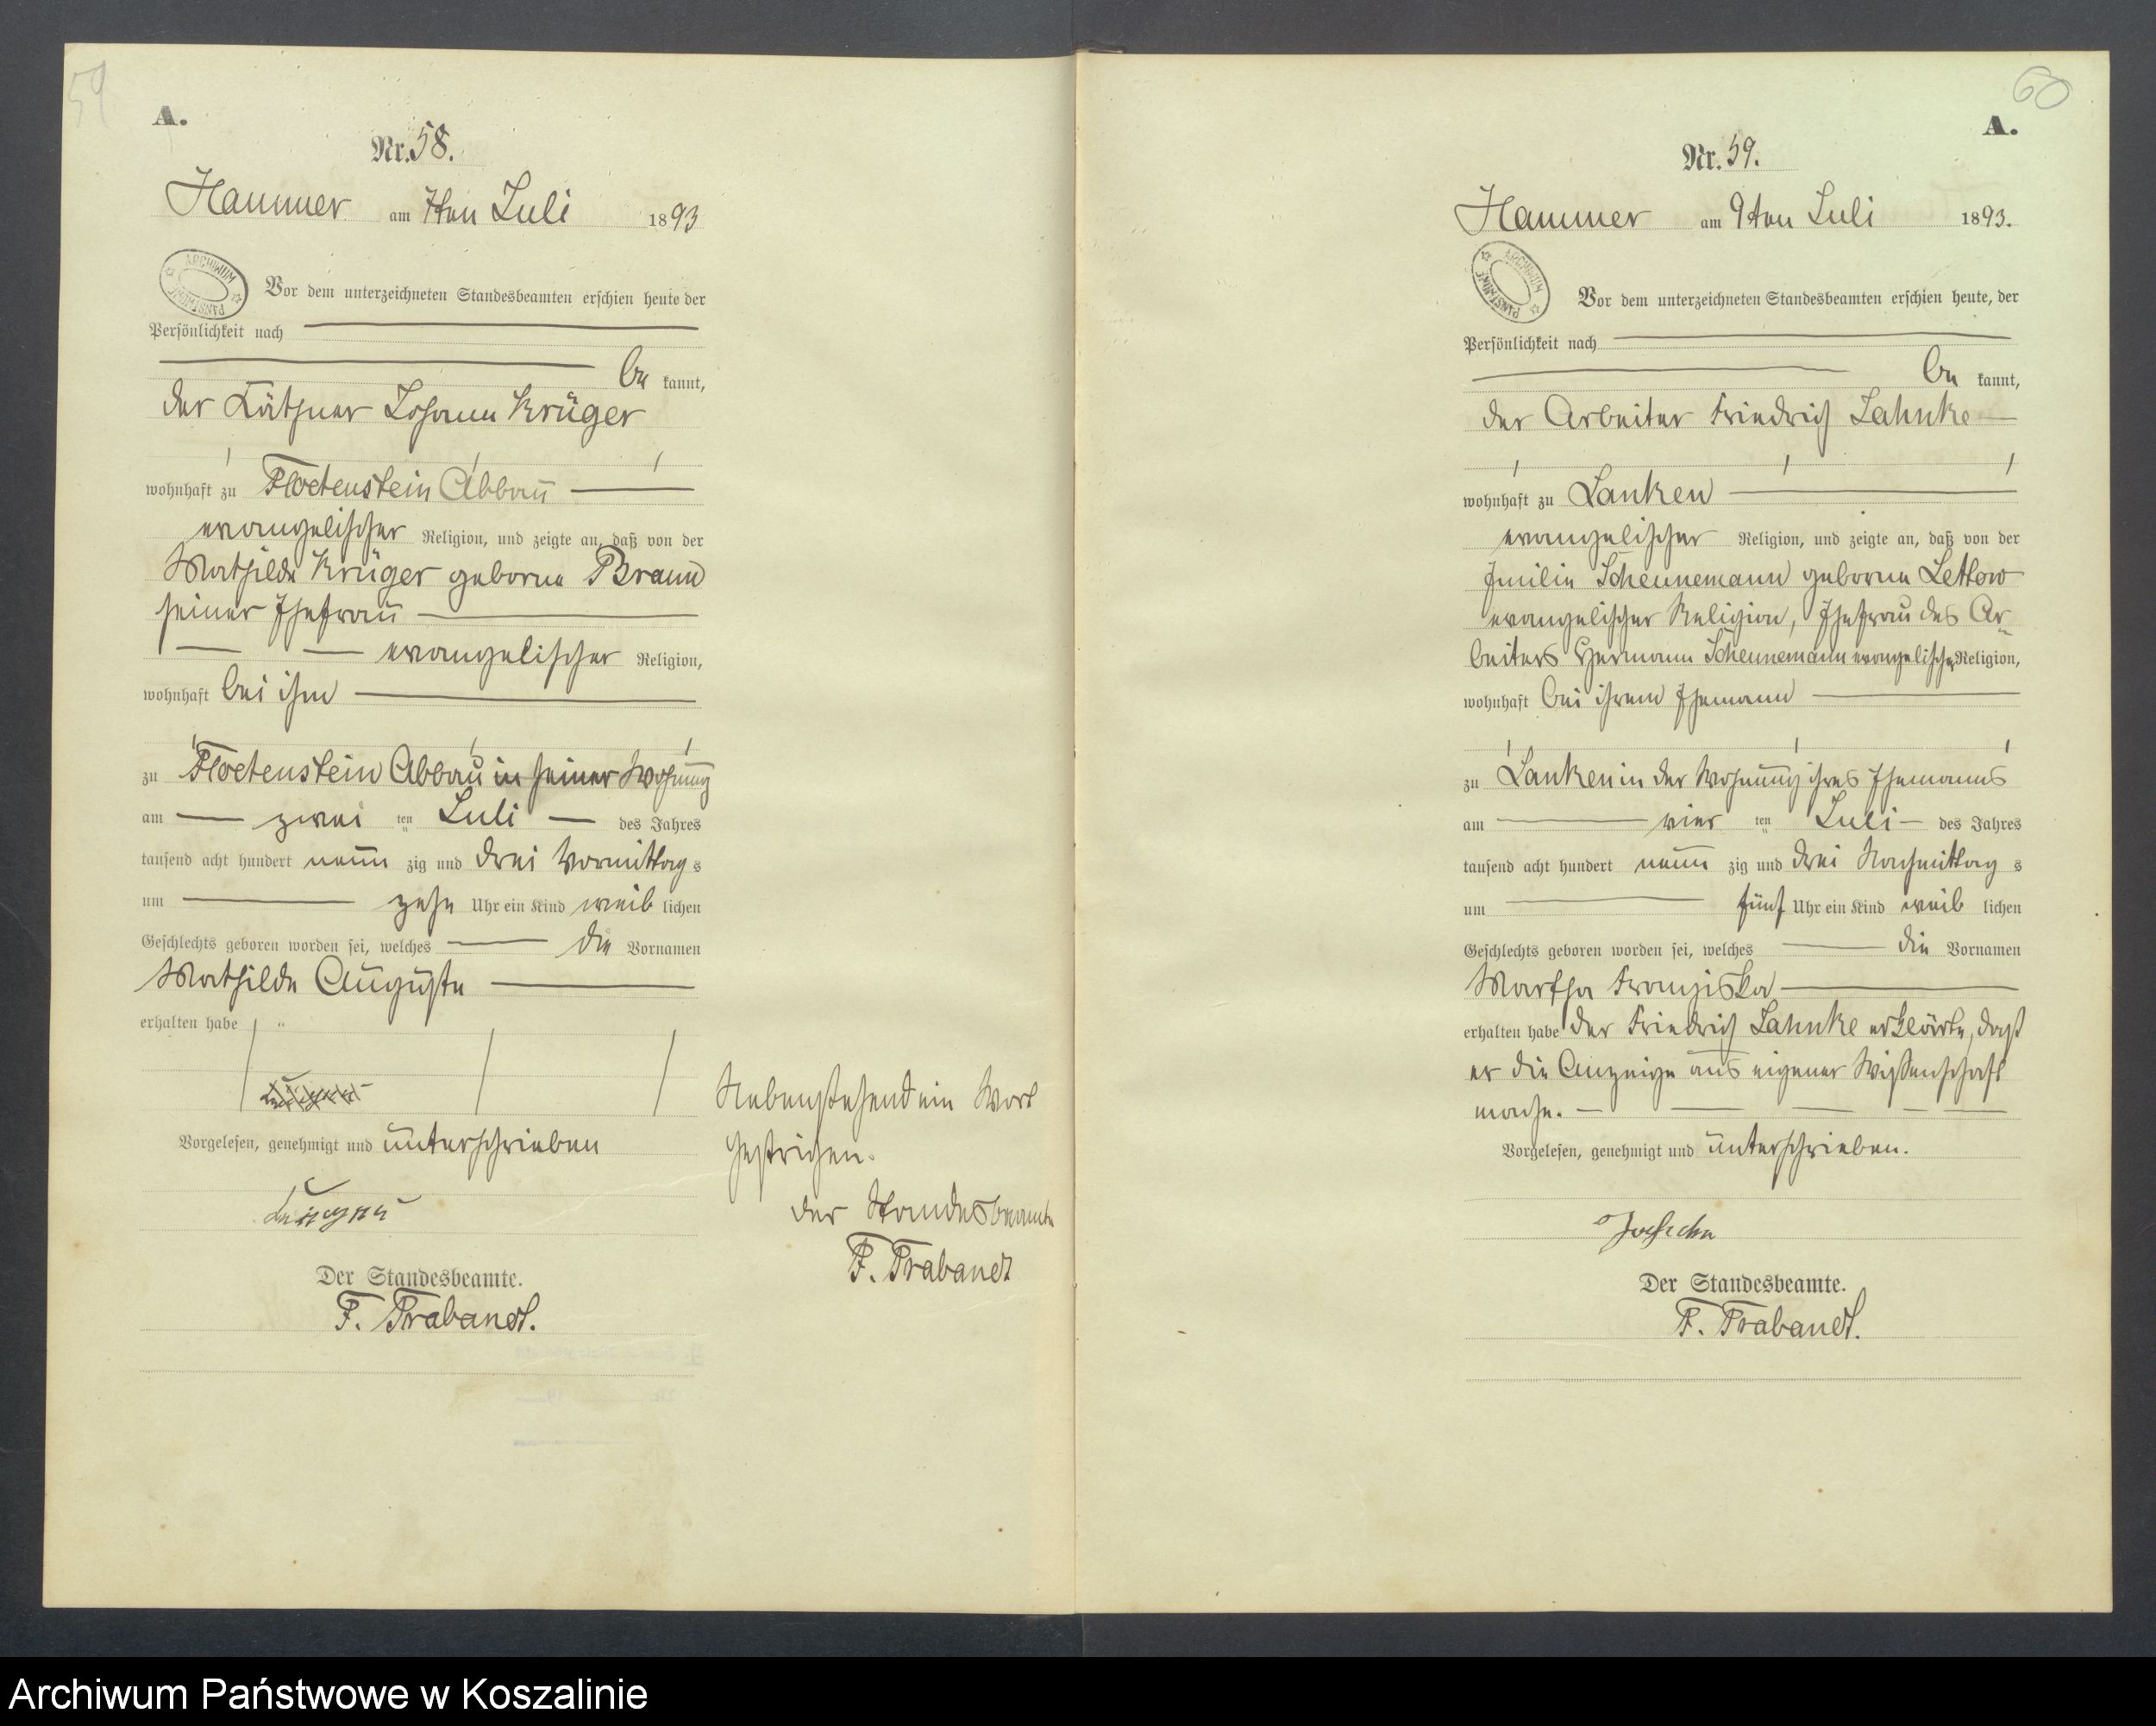 59
A.
Nr. 58.
Hammer am 7ten Juli 1893
ARCHIWUM PAŃSTWOWE
Vor dem unterzeichneten Standesbeamten erschien heute der
Persönlichkeit nach
be kannt,
der Käthner Johann Krüger
wohnhaft zu Floetenstein Abbau
evangelischer Religion, und zeigte an, daß von der
Mathilde Krüger geborne Braun
seiner Ehefrau
evangelischer Religion,
wohnhaft bei ihm
zu Floetenstein Abbau in seiner Wohnung
am zwei ten Juli des Jahres
tausend acht hundert neun zig und drei Vormittag s
um zehn Uhr ein Kind weib lichen
Geschlechts geboren worden sei, welches die Vornamen
Mathilde Auguste
erhalten habe
Vorgelesen, genehmigt und unterschrieben
Der Standesbeamte.
F. Trabandt.
Nebenstehend ein Wort
gestrichen.
der Standesbeamte
F. Trabandt
60
A.
Nr. 59.
Hammer am 9ten Juli 1893.
ARCHIWUM PAŃSTWOWE
Vor dem unterzeichneten Standesbeamten erschien heute, der
Persönlichkeit nach
be kannt,
der Arbeiter Friedrich Jahnke
wohnhaft zu Lanken
evangelischer Religion, und zeigte an, daß von der
Emilie Scheunemann geborne Lettow
evangelischer Religion, Ehefrau des Ar
beiters Hermann Scheunemann evangelischer Religion,
wohnhaft bei ihrem Ehemann
zu Lanken in der Wohnung ihres Ehemanns
am vier ten Juli des Jahres
tausend acht hundert neun zig und drei Nachmittag s
um fünf Uhr ein Kind weib lichen
Geschlechts geboren worden sei, welches die Vornamen
Martha Franziska
erhalten habe der Friedrich Jahnke erklärte, daß
er die Anzeige aus eigener Wissenschaft
mache.
Vorgelesen, genehmigt und unterschrieben.
Der Standesbeamte.
F. Trabandt.
Archiwum Państwowe w Koszalinie